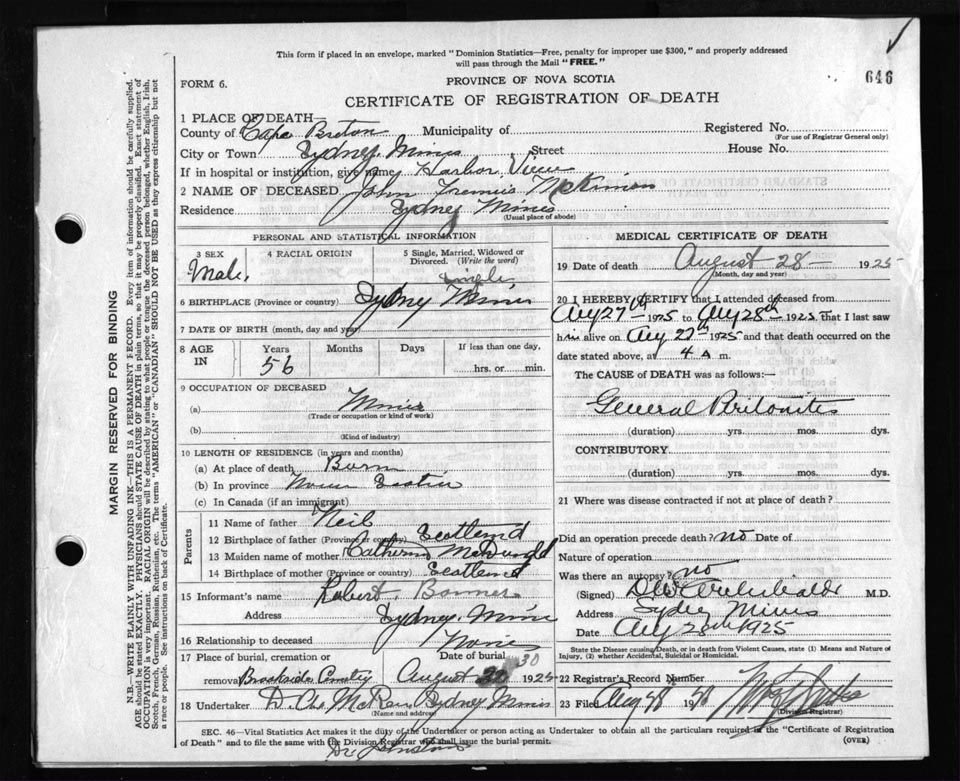 This form if placed in an envelope, marked "Dominion Statistics—Free, penalty for improper use $300," and properly addressed
will pass through the Mail "FREE."
646
FORM 6.
PROVINCE OF NOVA SCOTIA
CERTIFICATE OF REGISTRATION OF DEATH
1 PLACE OF DEATH—
County of Cape Breton Municipality of Registered No.
(For use of Registrar General only)
City or Town Sydney Mines Street House No.
If in hospital or institution, give name Harbor View
2 NAME OF DECEASED John Francis McKinnon
Residence Sydney Mines
(Usual place of abode)
PERSONAL AND STATISTICAL INFORMATION
3 SEX 4 RACIAL ORIGIN 5 Single, Married, Widowed or
Divorced. (Write the word)
Male. Single
6 BIRTHPLACE (Province or country) Sydney Mines
7 DATE OF BIRTH (month, day and year)
8 AGE IN Years Months Days If less than one day,
56 hrs. or min.
9 OCCUPATION OF DECEASED
(a) Miner
(Trade or occupation or kind of work)
(b)
(Kind of industry)
10 LENGTH OF RESIDENCE (in years and months)
(a) At place of death Born
(b) In province Nova Scotia
(c) In Canada (if an immigrant)
Parents
11 Name of father Neil
12 Birthplace of father (Province or country) Scotland
13 Maiden name of mother Catherine McDonald
14 Birthplace of mother (Province or country) Scotland
15 Informant's name Robert Bonner
Address Sydney Mines
16 Relationship to deceased None
17 Place of burial, cremation or Date of burial
removal Brookside Cemetry August 30 1925
18 Undertaker D. Chs McRae Sydney Mines
(Name and address)
MEDICAL CERTIFICATE OF DEATH
19 Date of death August 28— 1925
(Month, day and year)
20 I HEREBY CERTIFY that I attended deceased from
Aug 27th 1925 to Aug 28th 1925 that I last saw
him alive on Aug 27th 1925 and that death occurred on the
date stated above, at 4 A m.
The CAUSE of DEATH was as follows:—
General Peritonites
(duration) yrs. mos. dys.
CONTRIBUTORY
(duration) yrs. mos. dys.
21 Where was disease contracted if not at place of death?
Did an operation precede death? no Date of
Nature of operation
Was there an autopsy? no
(Signed) DW Archibald M.D.
Address Sydney Mines
Date Aug 28th 1925
State the Disease causing Death, or in death from Violent Causes, state (1) Means and Nature of
Injury, (2) whether Accidental, Suicidal or Homicidal.
22 Registrar's Record Number
23 Filed Aug 19
(Division Registrar)
SEC. 46—Vital Statistics Act makes it the duty of the Undertaker or person acting as Undertaker to obtain all the particulars required in the "Certificate of Registration
of Death" and to file the same with the Division Registrar who shall issue the burial permit.
(OVER)
Dr Johnston
MARGIN RESERVED FOR BINDING
N.B.—WRITE PLAINLY WITH UNFADING INK—THIS IS A PERMANENT RECORD. Every item of information should be carefully supplied.
AGE should be stated EXACTLY. PHYSICIANS should STATE CAUSE OF DEATH in plain terms, so that it may be properly classified. Exact statement of
OCCUPATION is very important. RACIAL ORIGIN will be described by stating to what people or tongue the deceased person belonged, whether English, Irish,
Scotch, French, German, Russian, Ruthenian, etc. The terms "AMERICAN" or "CANADIAN" SHOULD NOT BE USED as they express citizenship but not
a race or people. See instructions on back of Certificate.